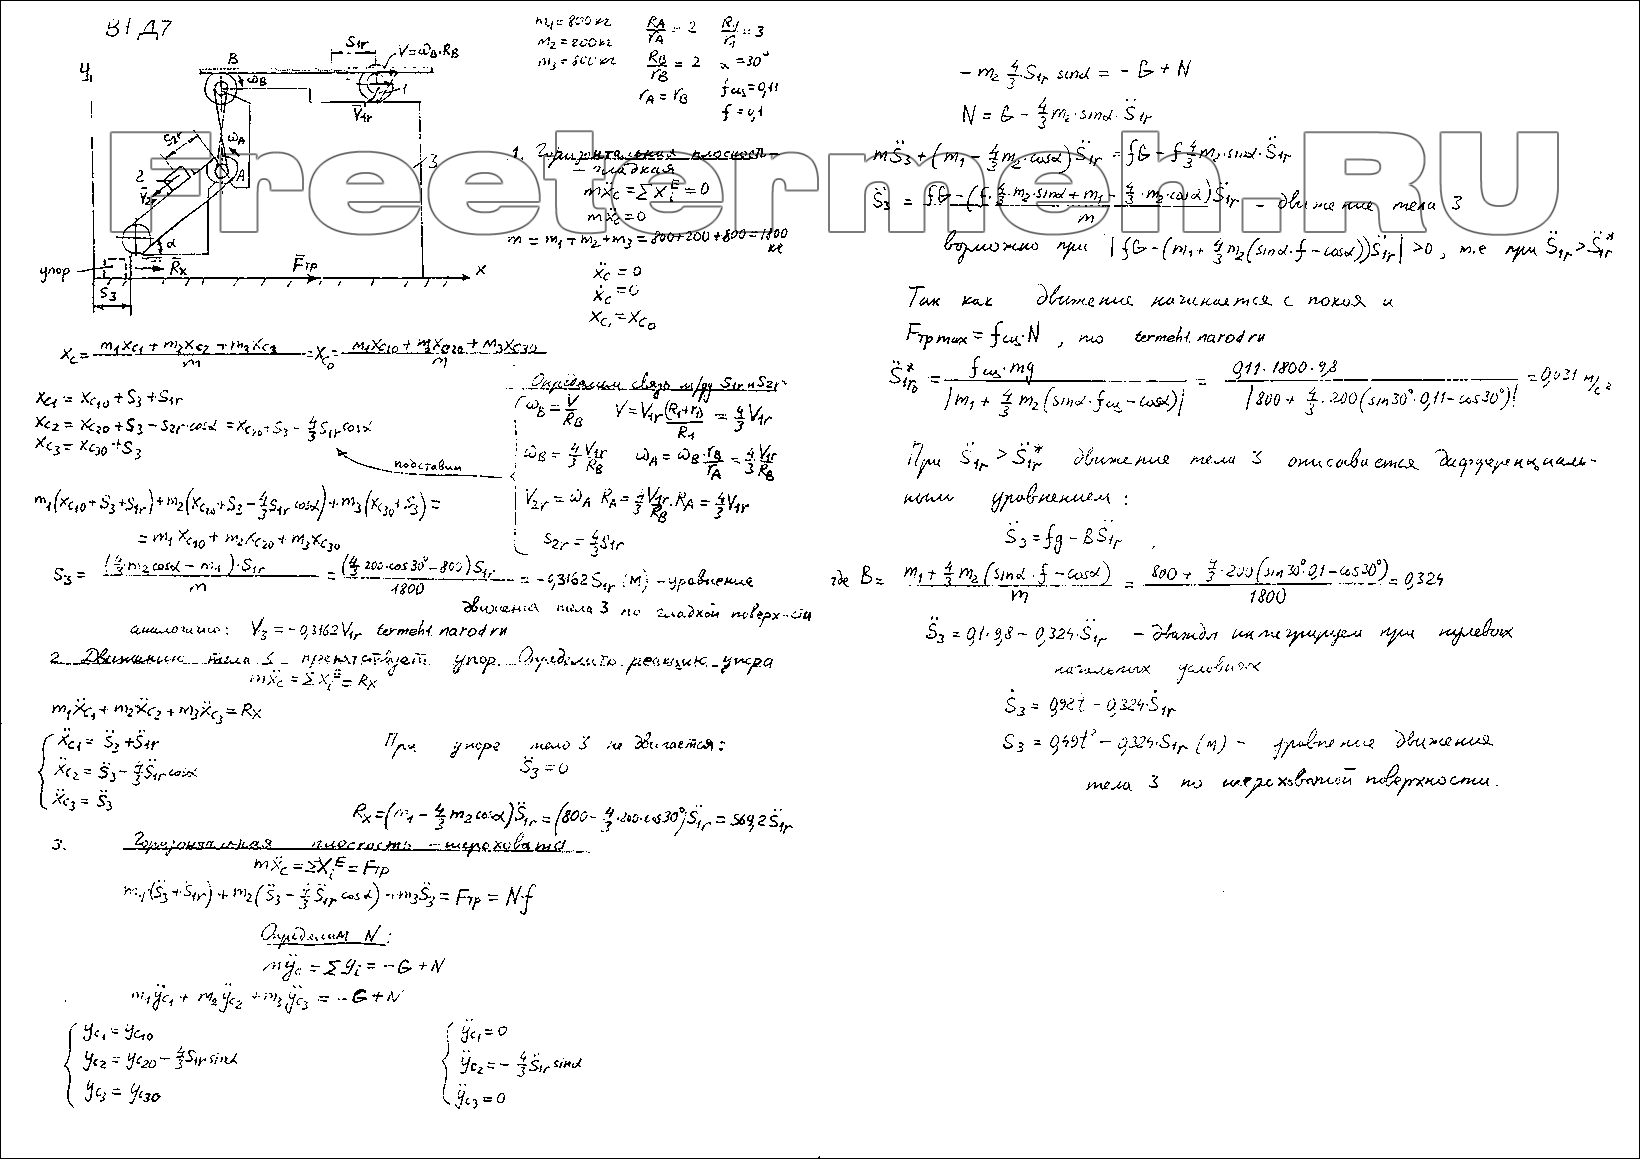 В1 Д7
m₁=800 кг
m₂=200 кг
m₃=800 кг
R_A/r_A = 2
R_B/r_B = 2
r_A = r_B
R₁/r₁ = 3
α = 30°
f_сц = 0,11
f = 0,1
S₁r
V=ω_B·R_B
B
ω_B
y
1
V̄₁r
S₂r
ω_A
A
2
V̄₂r
3
α
упор
R̄x
F̄тр
x
S₃
Freetermeh.RU
1. Горизонтальная плоскость
– гладкая
mẍ_c = ΣX_i^E = 0
mẍ_c = 0
m = m₁+m₂+m₃ = 800+200+800 = 1800 кг
ẍ_c = 0
ẋ_c = 0
x_c₁ = x_c₀
x_c = (m₁x_c1 + m₂x_c2 + m₃x_c3)/m = x_c₀ = (m₁x_c10 + m₂x_c20 + m₃x_c30)/m
x_c1 = x_c10 + S₃ + S₁r
x_c2 = x_c20 + S₃ – S₂r·cosα = x_c20 + S₃ – 4/3 S₁r cosα
x_c3 = x_c30 + S₃
подставим
Определим связь м/ду S₁r и S₂r
ω_B = V/R_B V = V₁r (R₁+r₁)/R₁ = 4/3 V₁r
ω_B = 4/3 V₁r/R_B ω_A = ω_B·r_B/r_A = 4/3 V₁r/R_B
V₂r = ω_A R_A = 4/3 V₁r/R_B · R_A = 4/3 V₁r
S₂r = 4/3 S₁r
m₁(x_c10 + S₃ + S₁r) + m₂(x_c20 + S₃ – 4/3 S₁r cosα) + m₃(x_c30 + S₃) =
= m₁x_c10 + m₂x_c20 + m₃x_c30
S₃ = (4/3 m₂cosα – m₁)·S₁r/m = (4/3 200·cos30° – 800)S₁r/1800 = –0,3162 S₁r (м) – уравнение
движения тела 3 по гладкой поверх-сти
аналогично: V₃ = –0,3162 V₁r termeht.narod.ru
2. Движению тела 3 препятствует упор. Определить реакцию упора
mẍ_c = ΣX_i^E = Rx
m₁ẍ_c1 + m₂ẍ_c2 + m₃ẍ_c3 = Rx
ẍ_c1 = S̈₃ + S̈₁r
ẍ_c2 = S̈₃ – 4/3 S̈₁r cosα
ẍ_c3 = S̈₃
При упоре тело 3 не двигается:
S̈₃ = 0
Rx = (m₁ – 4/3 m₂cosα)S̈₁r = (800 – 4/3·200·cos30°)S̈₁r = 569,2 S̈₁r
3. Горизонтальная плоскость – шероховата
mẍ_c = ΣX_i^E = Fтр
m₁(S̈₃+S̈₁r) + m₂(S̈₃ – 4/3 S̈₁r cosα) + m₃S̈₃ = Fтр = N·f
Определим N:
mÿ_c = Σy_i = –G + N
m₁ÿ_c1 + m₂ÿ_c2 + m₃ÿ_c3 = –G + N
y_c1 = y_c10
y_c2 = y_c20 – 4/3 S₁r sinα
y_c3 = y_c30
ÿ_c1 = 0
ÿ_c2 = –4/3 S̈₁r sinα
ÿ_c3 = 0
– m₂ 4/3 S̈₁r sinα = –G + N
N = G – 4/3 m₂·sinα·S̈₁r
mS̈₃ + (m₁ – 4/3 m₂·cosα)S̈₁r = fG – f 4/3 m₂·sinα·S̈₁r
S̈₃ = (fG – (f·4/3·m₂·sinα + m₁ – 4/3·m₂·cosα)S̈₁r)/m – движение тела 3
возможно при |fG – (m₁ + 4/3 m₂(sinα·f – cosα))S̈₁r| > 0, т.е при S̈₁r > S̈₁r*
Так как движение начинается с покоя и
Fтр max = f_сц·N, то termeht.narod.ru
S̈₁r₀* = f_сц·mg/|m₁ + 4/3 m₂(sinα·f_сц – cosα)| = 0,11·1800·9,8/|800 + 4/3·200(sin30°·0,11 – cos30°)| = 0,031 м/с²
При S̈₁r > S̈₁r* движение тела 3 описывается дифференциаль-
ным уравнением:
S̈₃ = fg – BS̈₁r,
где B = (m₁ + 4/3 m₂(sinα·f – cosα))/m = (800 + 4/3·200(sin30°·0,1 – cos30°))/1800 = 0,324
S̈₃ = 0,1·9,8 – 0,324·S̈₁r – дважды интегрируем при нулевых
начальных условиях
Ṡ₃ = 0,98t – 0,324·Ṡ₁r
S₃ = 0,49t² – 0,324·S₁r (м) – уравнение движения
тела 3 по шероховатой поверхности.